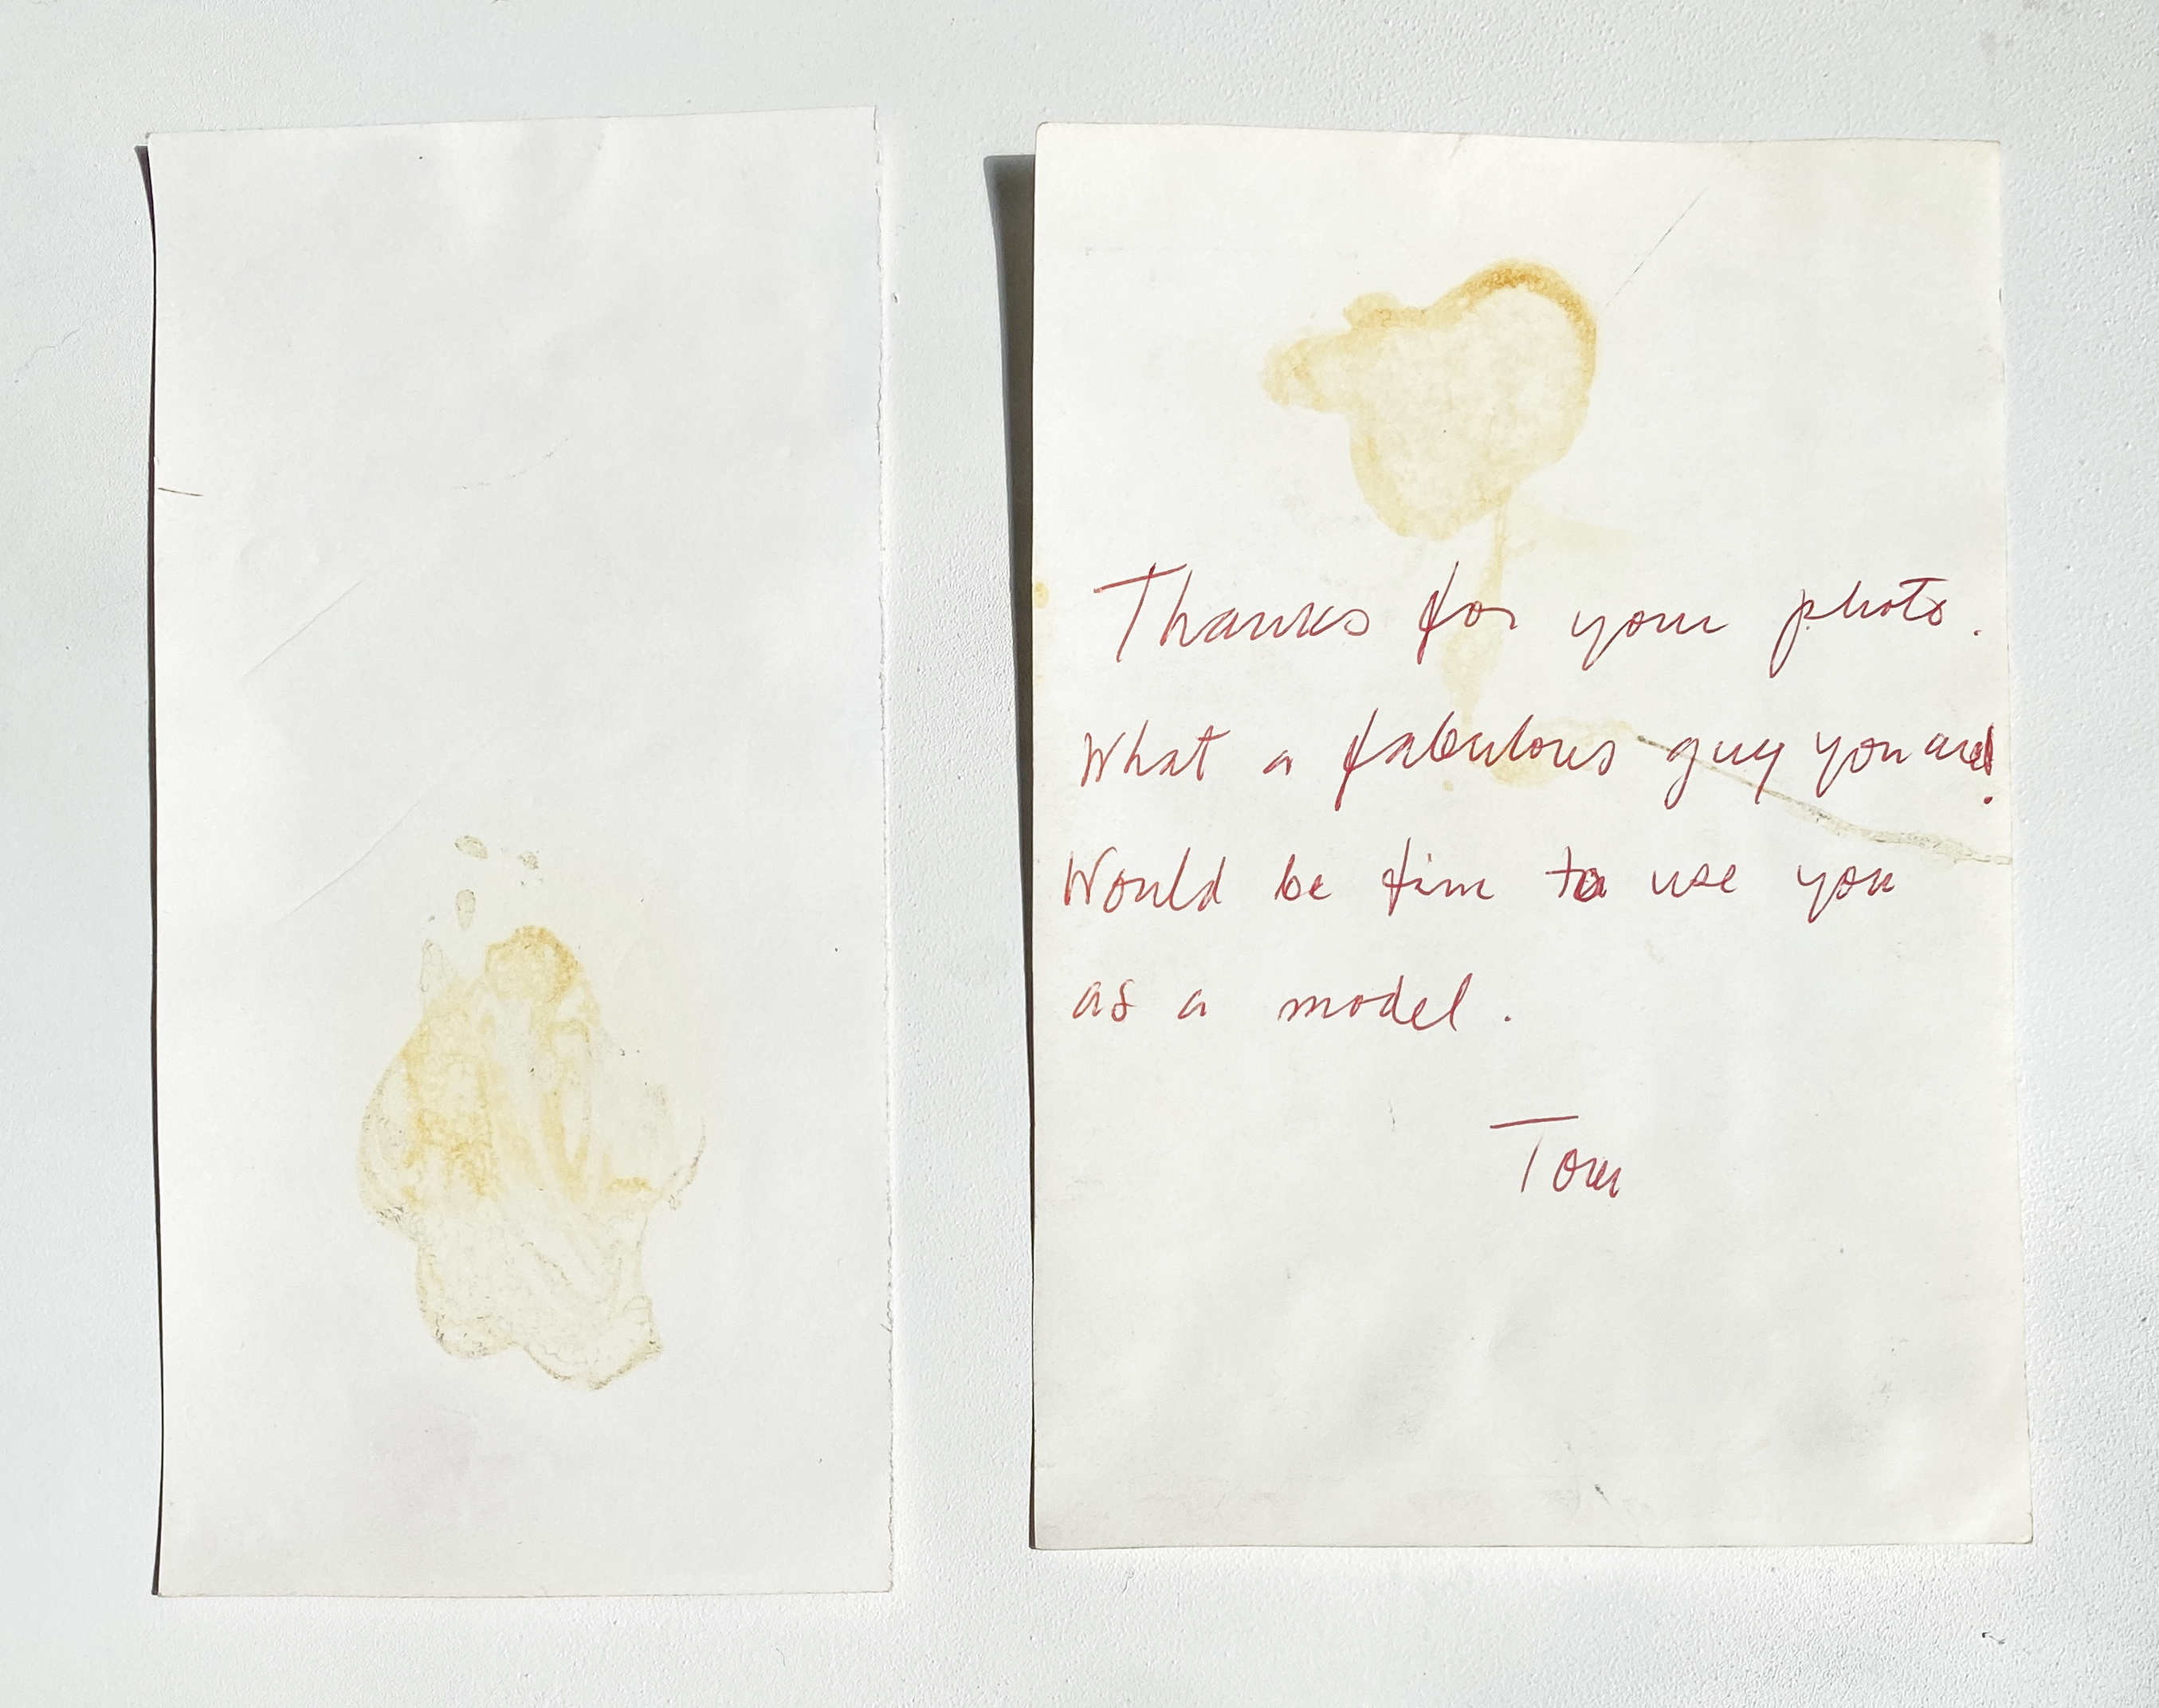 Thanks for your photo.
What a fabulous guy you are!
Would be fun to use you
as a model.
Tom